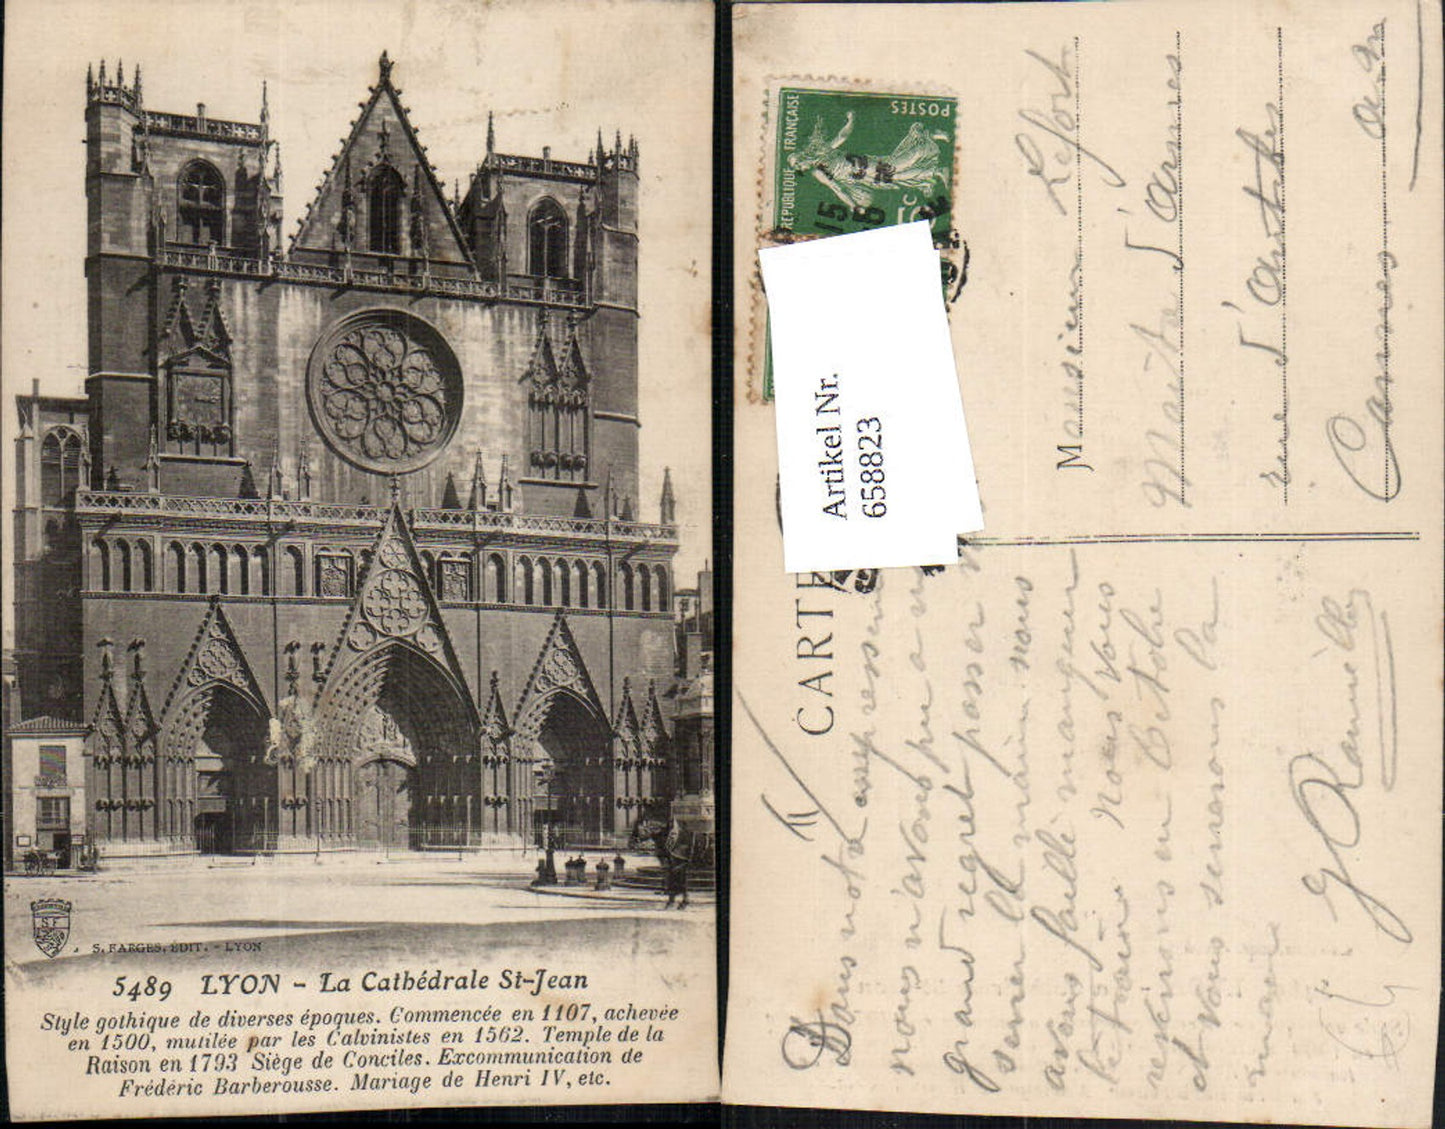 S. FARGES, EDIT. - LYON
S F
5489 LYON - La Cathédrale St-Jean
Style gothique de diverses époques. Commencée en 1107, achevée
en 1500, mutilée par les Calvinistes en 1562. Temple de la
Raison en 1793 Siège de Conciles. Excommunication de
Frédéric Barberousse. Mariage de Henri IV, etc.
RÉPUBLIQUE FRANÇAISE
POSTES
5c
15
Artikel Nr.
658823
CARTE
Monsieur Lefort
Maître d'armes
rue d'Antibes
Cannes
Dans notre
nous n'avons pu a
grand regret passer v
serrer la main nous
avons faillé manquer
le train Nous vous
en Octobre
et vous serrerons la
main